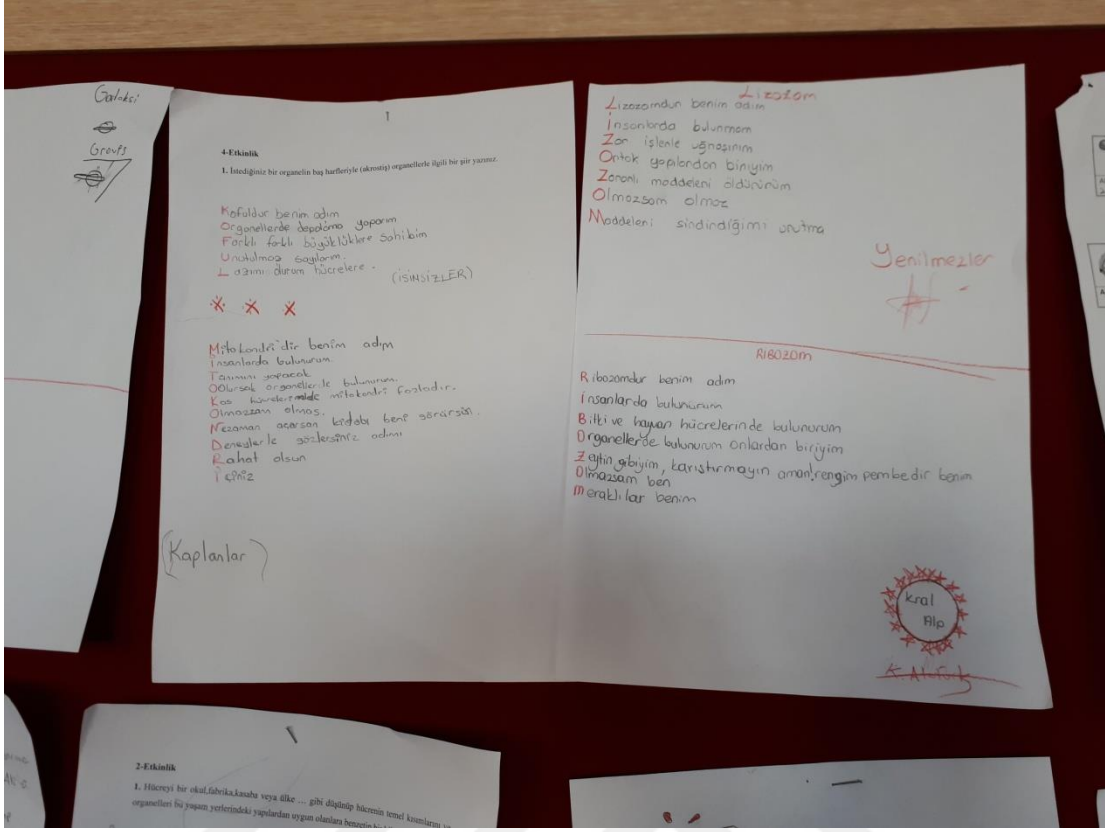 Galaksi
Groups
1
4-Etkinlik
1. İstediğiniz bir organelin baş harfleriyle (akrostiş) organellerle ilgili bir şiir yazınız.
Kofuldur benim adım
Organellerde depolama yaparım
Farklı farklı büyüklüklere sahibim
Unutulmaz sayılarım.
Lazımı durum hücrelere.
(İSİMSİZLER)
Mitokondri'dir benim adım
İnsanlarda bulunurum.
Tanımı yapacak
Olursak organellerle bulunurum.
Kas hücrelerinde mitokondri fazladır.
Olmazsan olmas.
Nezaman acarsan kitabı beni görürsün.
Deneylerle gözlersiniz adımı
Rahat olsun
İçiniz
(Kaplanlar)
Lizozom
Lizozomdur benim adım
İnsanlarda bulunmam
Zor işlerle uğraşırım
Ortak yapılardan biriyim
Zararlı maddeleri öldürürüm
Olmazsam olmaz
Maddeleri sindirdiğimi unutma
Yenilmezler
RİBOZOM
Ribozomdur benim adım
İnsanlarda bulunurum
Bitki ve hayvan hücrelerinde bulunurum
Organellerde bulunurum onlardan biriyim
Zeytin gibiyim, karıştırmayın aman! rengim pembedir benim
Olmazsam ben
Meraklılar benim
Kral
Alp
K. Atatürk
2-Etkinlik
1. Hücreyi bir okul,fabrika,kasaba veya ülke … gibi düşünüp hücrenin temel kısımlarını
organelleri bu yaşam yerlerindeki yapılardan uygun olanlara benzetin